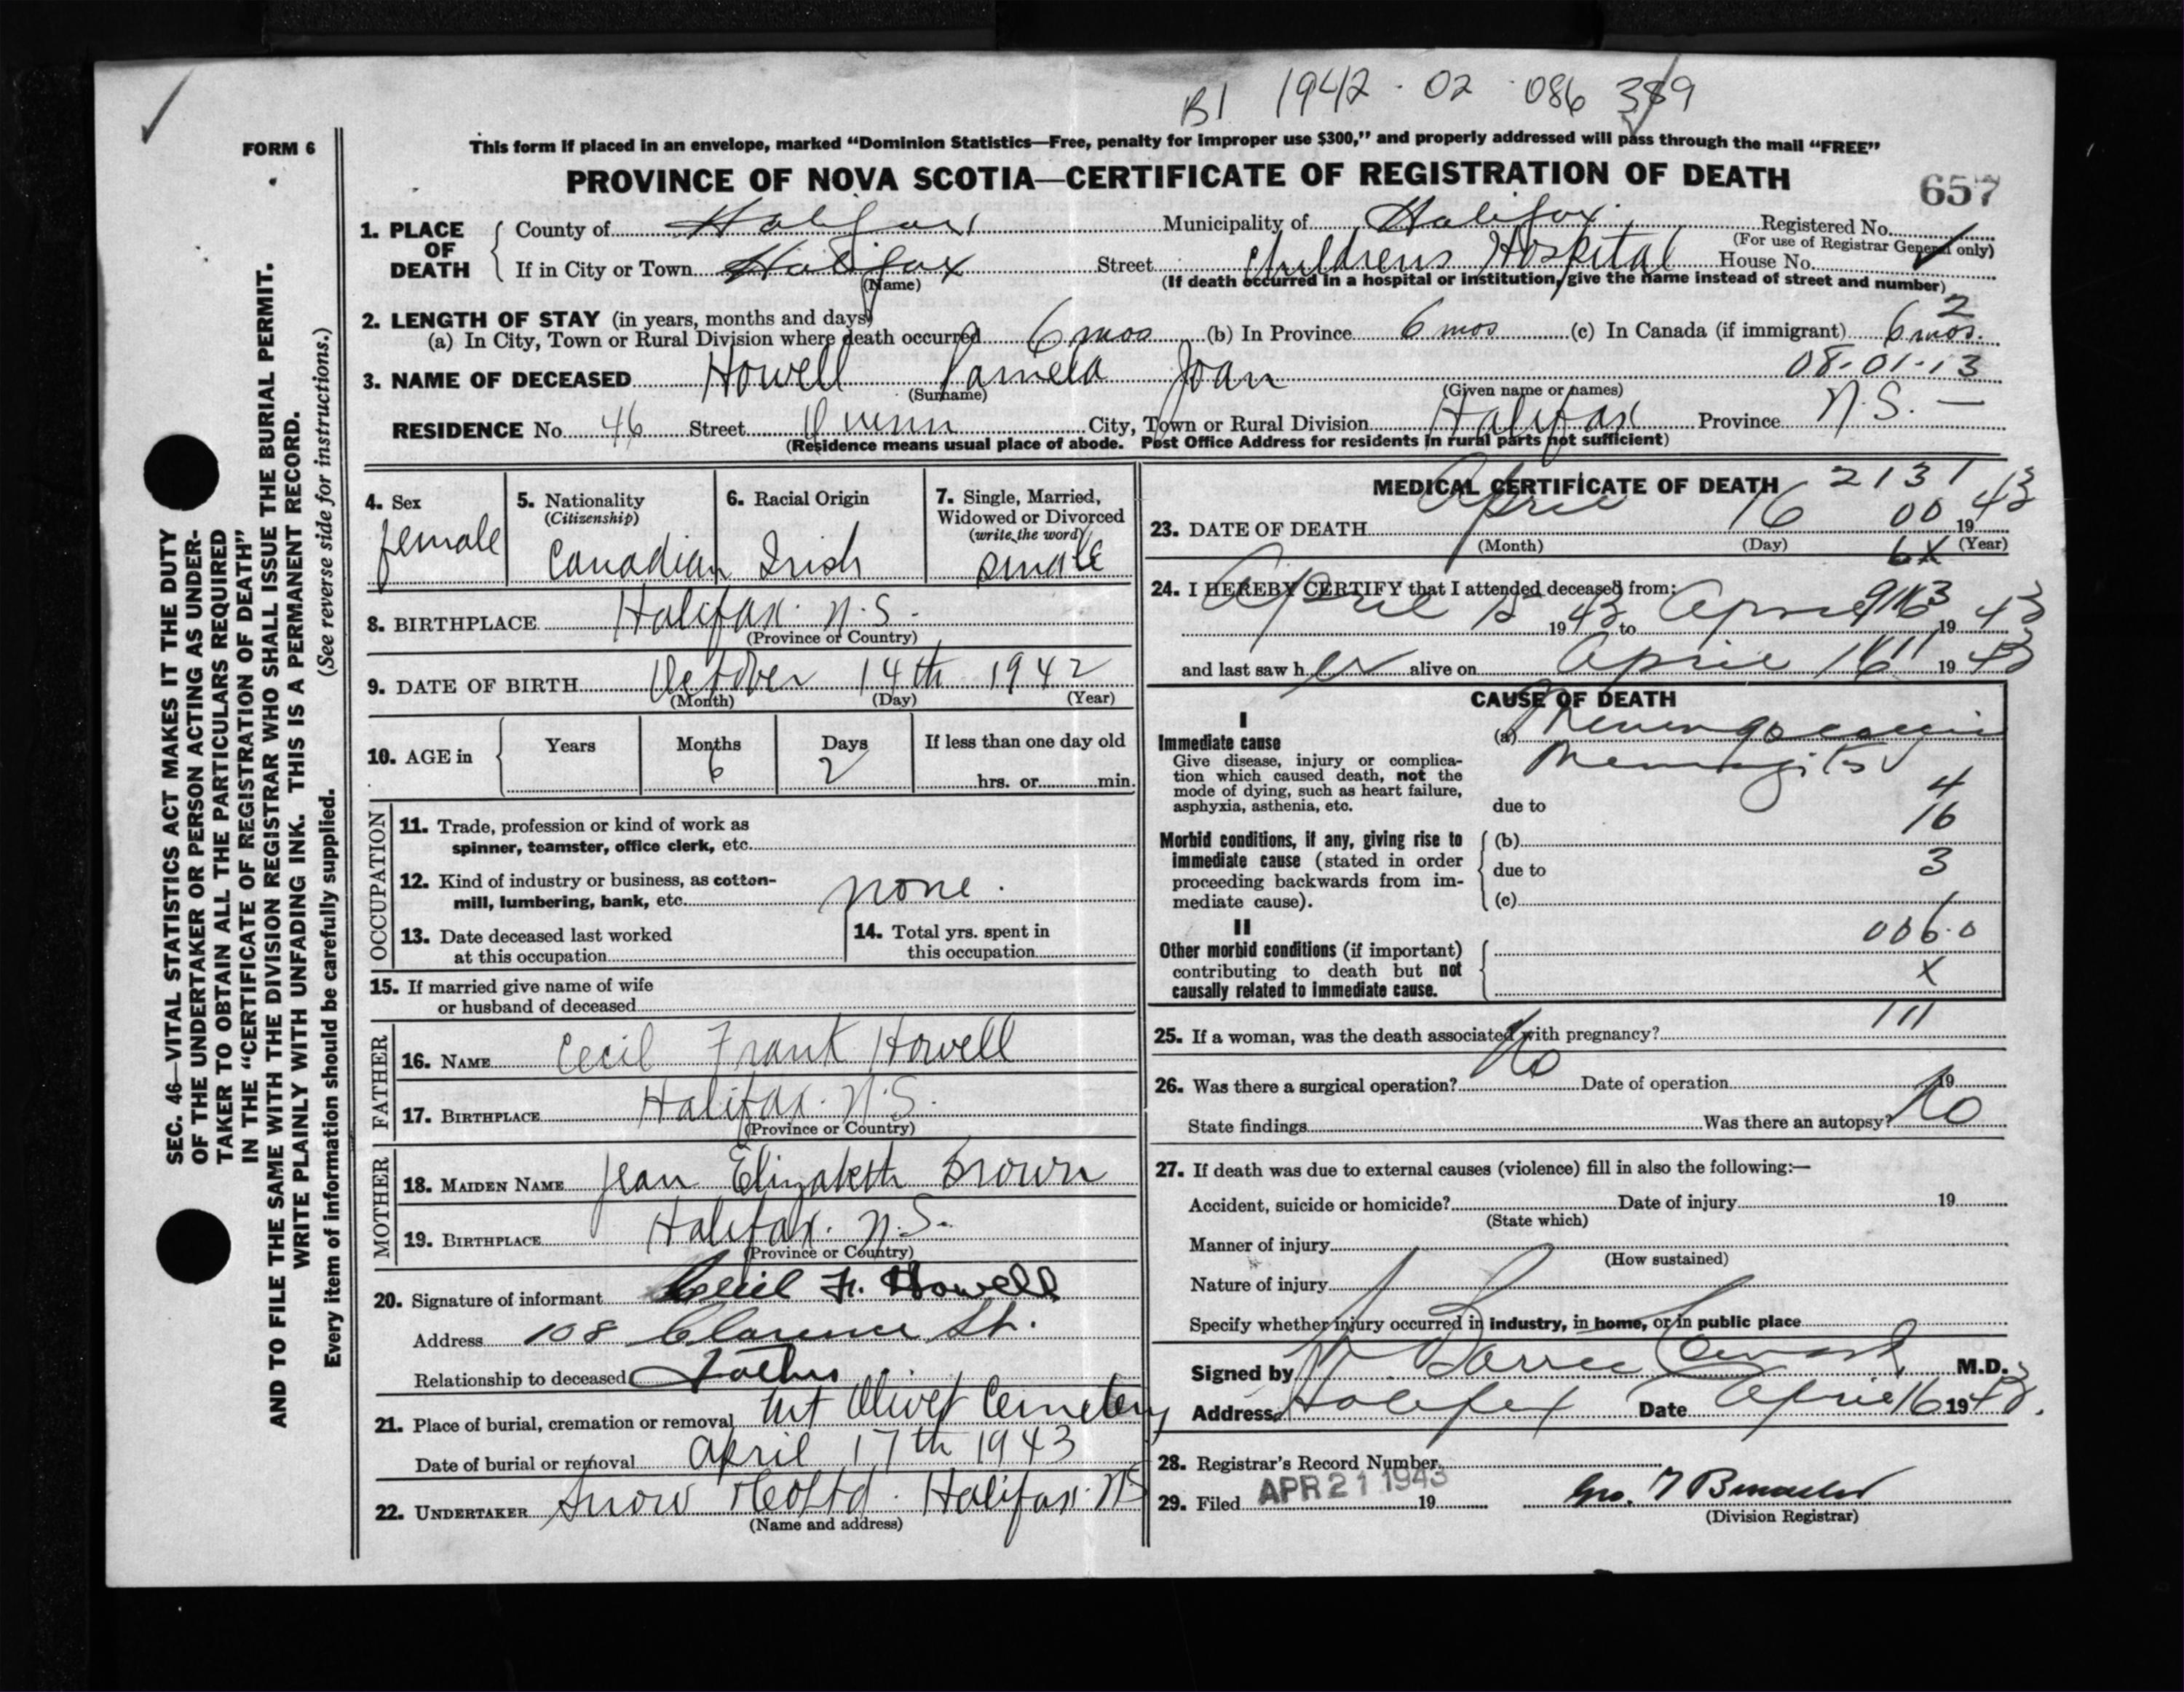 B1 1942 - 02 - 086 389
FORM 6
This form if placed in an envelope, marked “Dominion Statistics—Free, penalty for improper use $300,” and properly addressed will pass through the mail “FREE”
PROVINCE OF NOVA SCOTIA—CERTIFICATE OF REGISTRATION OF DEATH
657
1. PLACE OF DEATH
County of Halifax Municipality of Halifax Registered No.
(For use of Registrar General only)
If in City or Town Halifax Street Childrens Hospital House No.
(Name) (If death occurred in a hospital or institution, give the name instead of street and number)
2. LENGTH OF STAY (in years, months and days) 2
(a) In City, Town or Rural Division where death occurred 6 mos (b) In Province 6 mos (c) In Canada (if immigrant) 6 mos.
08-01-13
3. NAME OF DECEASED Howell Pamela Joan
(Surname) (Given name or names)
RESIDENCE No. 46 Street Quinn City, Town or Rural Division Halifax Province N.S. —
(Residence means usual place of abode. Post Office Address for residents in rural parts not sufficient)
4. Sex
female
5. Nationality
(Citizenship)
Canadian
6. Racial Origin
Irish
7. Single, Married,
Widowed or Divorced
(write the word)
single
8. BIRTHPLACE Halifax. N.S.
(Province or Country)
9. DATE OF BIRTH October 14th 1942
(Month) (Day) (Year)
10. AGE in
Years Months Days If less than one day old
6 2
hrs. or min.
OCCUPATION
11. Trade, profession or kind of work as
spinner, teamster, office clerk, etc.
12. Kind of industry or business, as cotton-
mill, lumbering, bank, etc. none.
13. Date deceased last worked
at this occupation
14. Total yrs. spent in
this occupation
15. If married give name of wife
or husband of deceased
FATHER
16. NAME Cecil Frank Howell
17. BIRTHPLACE Halifax. N.S.
(Province or Country)
MOTHER
18. MAIDEN NAME Jean Elizabeth Brown
19. BIRTHPLACE Halifax. N.S.
(Province or Country)
20. Signature of informant Cecil F. Howell
Address 108 Clarence St.
Relationship to deceased Father
21. Place of burial, cremation or removal Mt Olivet Cemetery
Date of burial or removal April 17th 1943
22. UNDERTAKER Snow & Co Ltd. Halifax. NS
(Name and address)
MEDICAL CERTIFICATE OF DEATH 2131
23. DATE OF DEATH April 16 00 1943
(Month) (Day) (Year)
6X
24. I HEREBY CERTIFY that I attended deceased from:
April 15 1943 to April 16 1943
and last saw her alive on April 16 1943
CAUSE OF DEATH
I
Immediate cause
Give disease, injury or complica-
tion which caused death, not the
mode of dying, such as heart failure,
asphyxia, asthenia, etc.
(a) Meningococcic
Meningitis
4
due to
16
Morbid conditions, if any, giving rise to
immediate cause (stated in order
proceeding backwards from im-
mediate cause).
(b)
due to
3
(c)
II
Other morbid conditions (if important)
contributing to death but not
causally related to immediate cause.
006.0
X
111
25. If a woman, was the death associated with pregnancy?
26. Was there a surgical operation? No Date of operation 19
State findings Was there an autopsy? No
27. If death was due to external causes (violence) fill in also the following:—
Accident, suicide or homicide? Date of injury 19
(State which)
Manner of injury
(How sustained)
Nature of injury
Specify whether injury occurred in industry, in home, or in public place
Signed by M.D.
Address Halifax Date April 16 1943.
28. Registrar's Record Number
29. Filed APR 21 1943 19
(Division Registrar)
SEC. 46—VITAL STATISTICS ACT MAKES IT THE DUTY
OF THE UNDERTAKER OR PERSON ACTING AS UNDER-
TAKER TO OBTAIN ALL THE PARTICULARS REQUIRED
IN THE “CERTIFICATE OF REGISTRATION OF DEATH”
AND TO FILE THE SAME WITH THE DIVISION REGISTRAR WHO SHALL ISSUE THE BURIAL PERMIT.
WRITE PLAINLY WITH UNFADING INK. THIS IS A PERMANENT RECORD.
Every item of information should be carefully supplied. (See reverse side for instructions.)